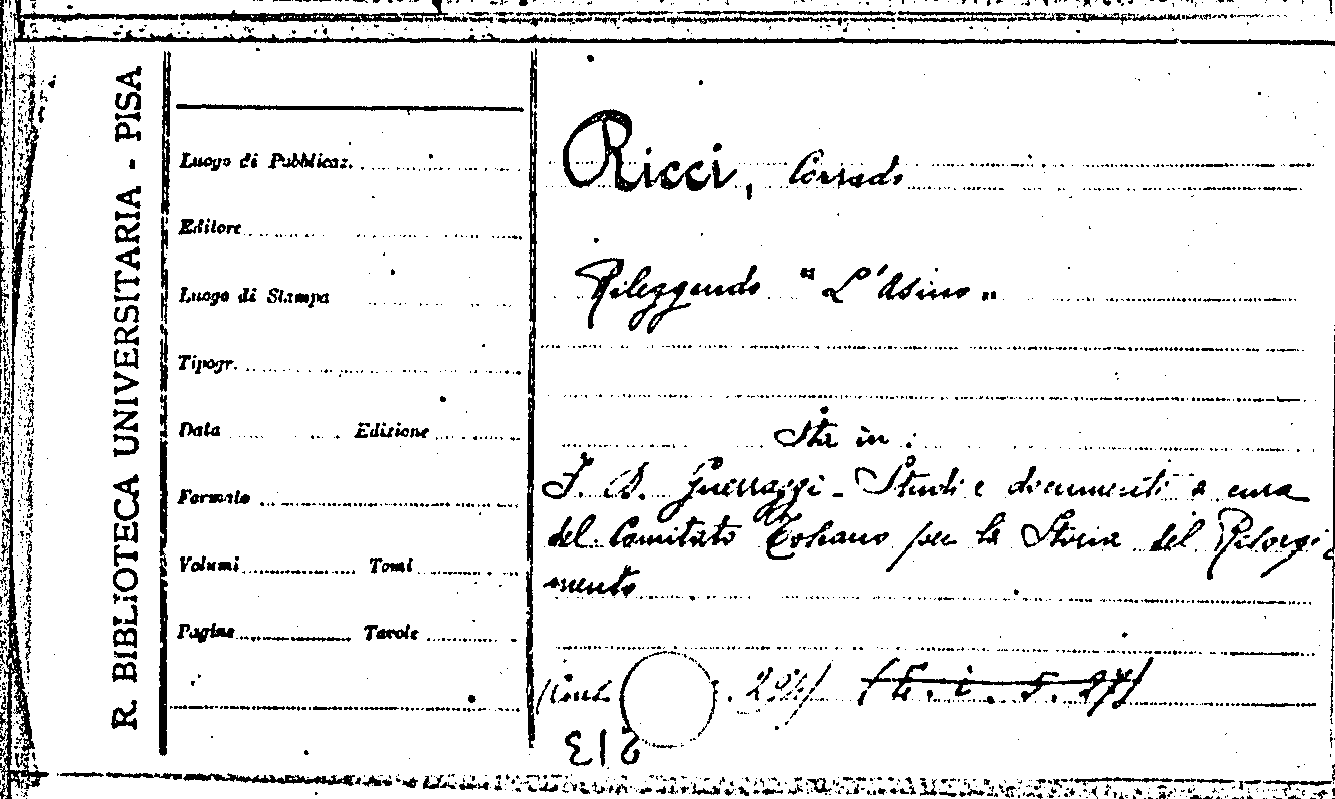 R. BIBLIOTECA UNIVERSITARIA - PISA
Luogo di Pubblicaz.
Editore
Luogo di Stampa
Tipogr.
Data Edizione
Formato
Volumi Tomi
Pagine Tavole
Ricci, Corrado
Rileggendo "L'Asino"
Sta in:
F. D. Guerrazzi - Studi e documenti a cura
del Comitato Toscano per la Storia del Risorgi
mento
(Cons. . 294) (F. i. 5. 27)
213